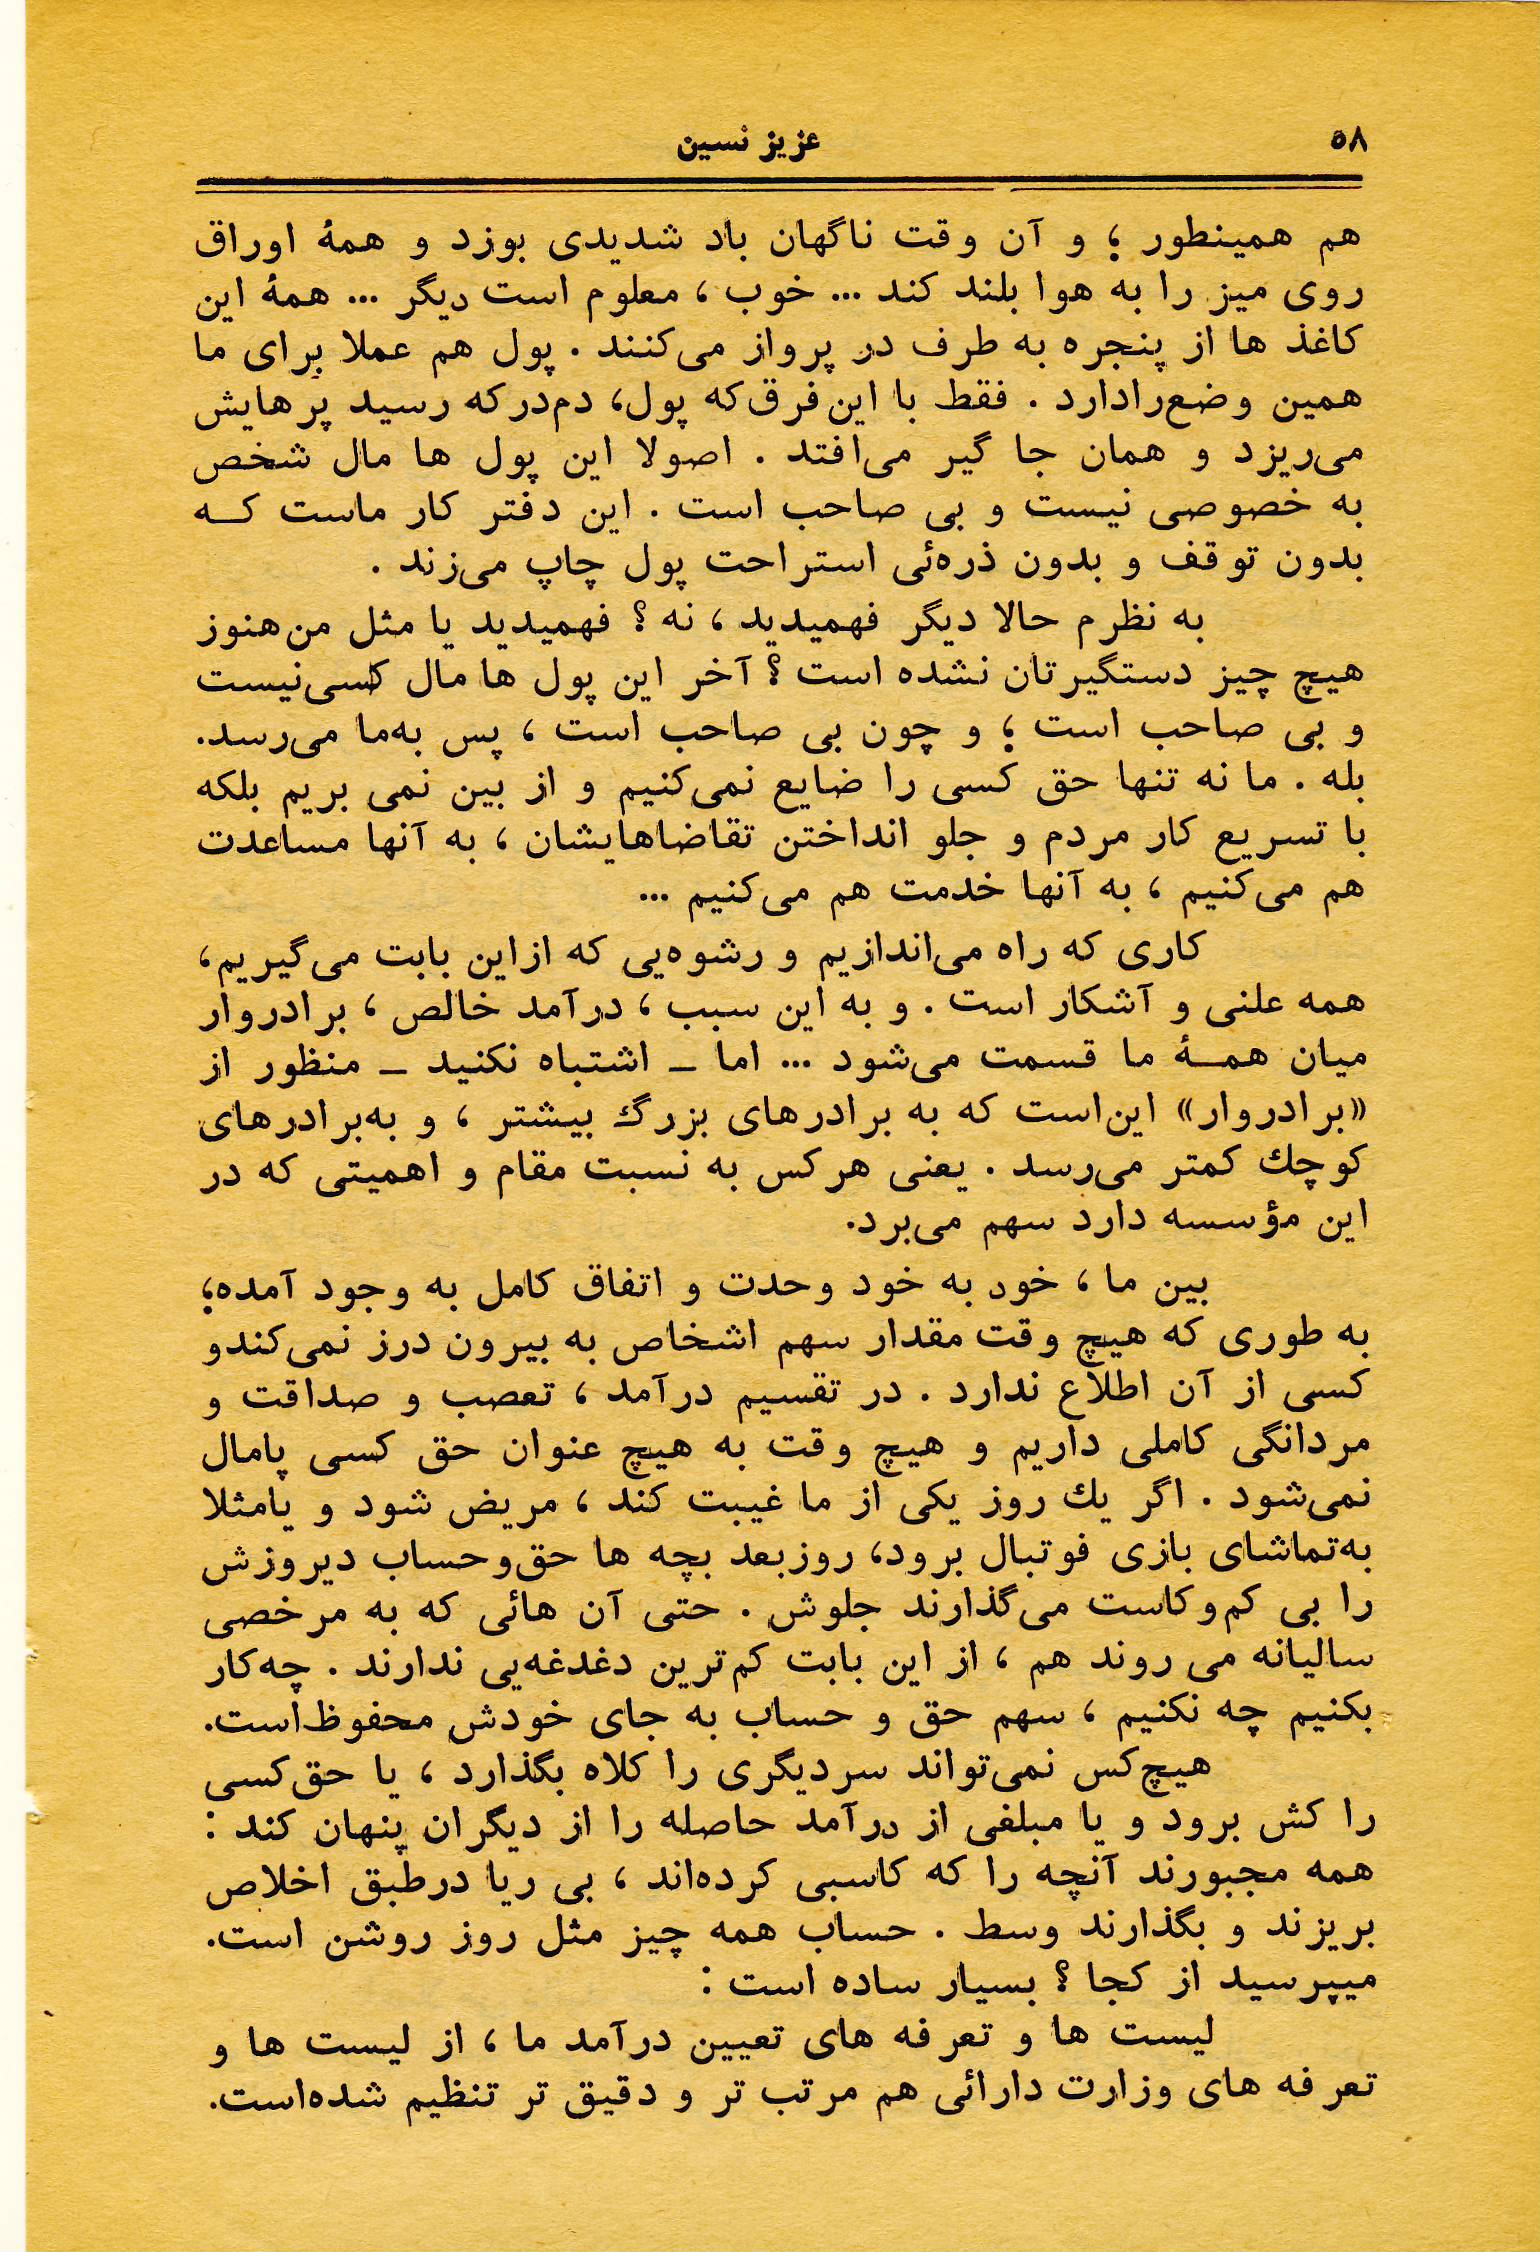 ۵۸
عزیز نسین
هم همینطور ؛ و آن وقت ناگهان باد شدیدی بوزد و همهٔ اوراق
روی میز را به هوا بلند کند ... خوب ، معلوم است دیگر ... همهٔ این
کاغذ ها از پنجره به طرف در پرواز می‌کنند . پول هم عملا برای ما
همین وضع‌رادارد . فقط با این‌فرق‌که پول، دم‌درکه رسید پرهایش
می‌ریزد و همان جا گیر می‌افتد . اصولا این پول ها مال شخص
به خصوصی نیست و بی صاحب است . این دفتر کار ماست کــه
بدون توقف و بدون ذره‌ئی استراحت پول چاپ می‌زند .
به نظرم حالا دیگر فهمیدید ، نه ؟ فهمیدید یا مثل من‌هنوز
هیچ چیز دستگیرتان نشده است ؟ آخر این پول ها مال کسی‌نیست
و بی صاحب است ؛ و چون بی صاحب است ، پس به‌ما می‌رسد.
بله . ما نه تنها حق کسی را ضایع نمی‌کنیم و از بین نمی بریم بلکه
با تسریع کار مردم و جلو انداختن تقاضاهایشان ، به آنها مساعدت
هم می‌کنیم ، به آنها خدمت هم می‌کنیم ...
کاری که راه می‌اندازیم و رشوه‌یی که ازاین بابت می‌گیریم،
همه علنی و آشکار است . و به این سبب ، درآمد خالص ، برادروار
میان همــهٔ ما قسمت می‌شود ... اما ـ اشتباه نکنید ـ منظور از
«برادروار» این‌است که به برادرهای بزرگ بیشتر ، و به‌برادرهای
کوچك کمتر می‌رسد . یعنی هرکس به نسبت مقام و اهمیتی که در
این مؤسسه دارد سهم می‌برد.
بین ما ، خود به خود وحدت و اتفاق کامل به وجود آمده؛
به طوری که هیچ وقت مقدار سهم اشخاص به بیرون درز نمی‌کندو
کسی از آن اطلاع ندارد . در تقسیم درآمد ، تعصب و صداقت و
مردانگی کاملی داریم و هیچ وقت به هیچ عنوان حق کسی پامال
نمی‌شود . اگر یك روز یکی از ما غیبت کند ، مریض شود و یامثلا
به‌تماشای بازی فوتبال برود، روزبعد بچه ها حق‌وحساب دیروزش
را بی کم‌وکاست می‌گذارند جلوش . حتی آن هائی که به مرخصی
سالیانه می روند هم ، از این بابت کم‌ترین دغدغه‌یی ندارند . چه‌کار
بکنیم چه نکنیم ، سهم حق و حساب به جای خودش محفوظ‌است.
هیچ‌کس نمی‌تواند سردیگری را کلاه بگذارد ، یا حق‌کسی
را کش برود و یا مبلغی از درآمد حاصله را از دیگران پنهان کند :
همه مجبورند آنچه را که کاسبی کرده‌اند ، بی ریا درطبق اخلاص
بریزند و بگذارند وسط . حساب همه چیز مثل روز روشن است.
میپرسید از کجا ؟ بسیار ساده است :
لیست ها و تعرفه های تعیین درآمد ما ، از لیست ها و
تعرفه های وزارت دارائی هم مرتب تر و دقیق تر تنظیم شده‌است.